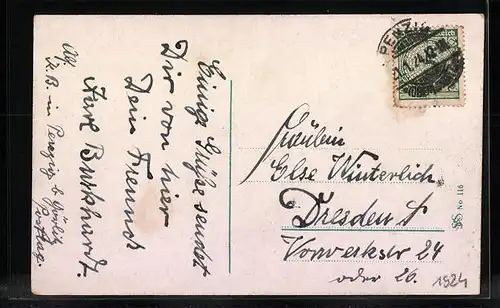 Einige Grüße sendet
Dir von hier
Dein Freund
Karl Burkhardt.
Abs.
K. B. in Penzig b Görlitz
postlag.
PENZIG
Fräulein
Else Winterlich.
Dresden
Vorwerkstr 24
oder 26.
SS No 116
1924